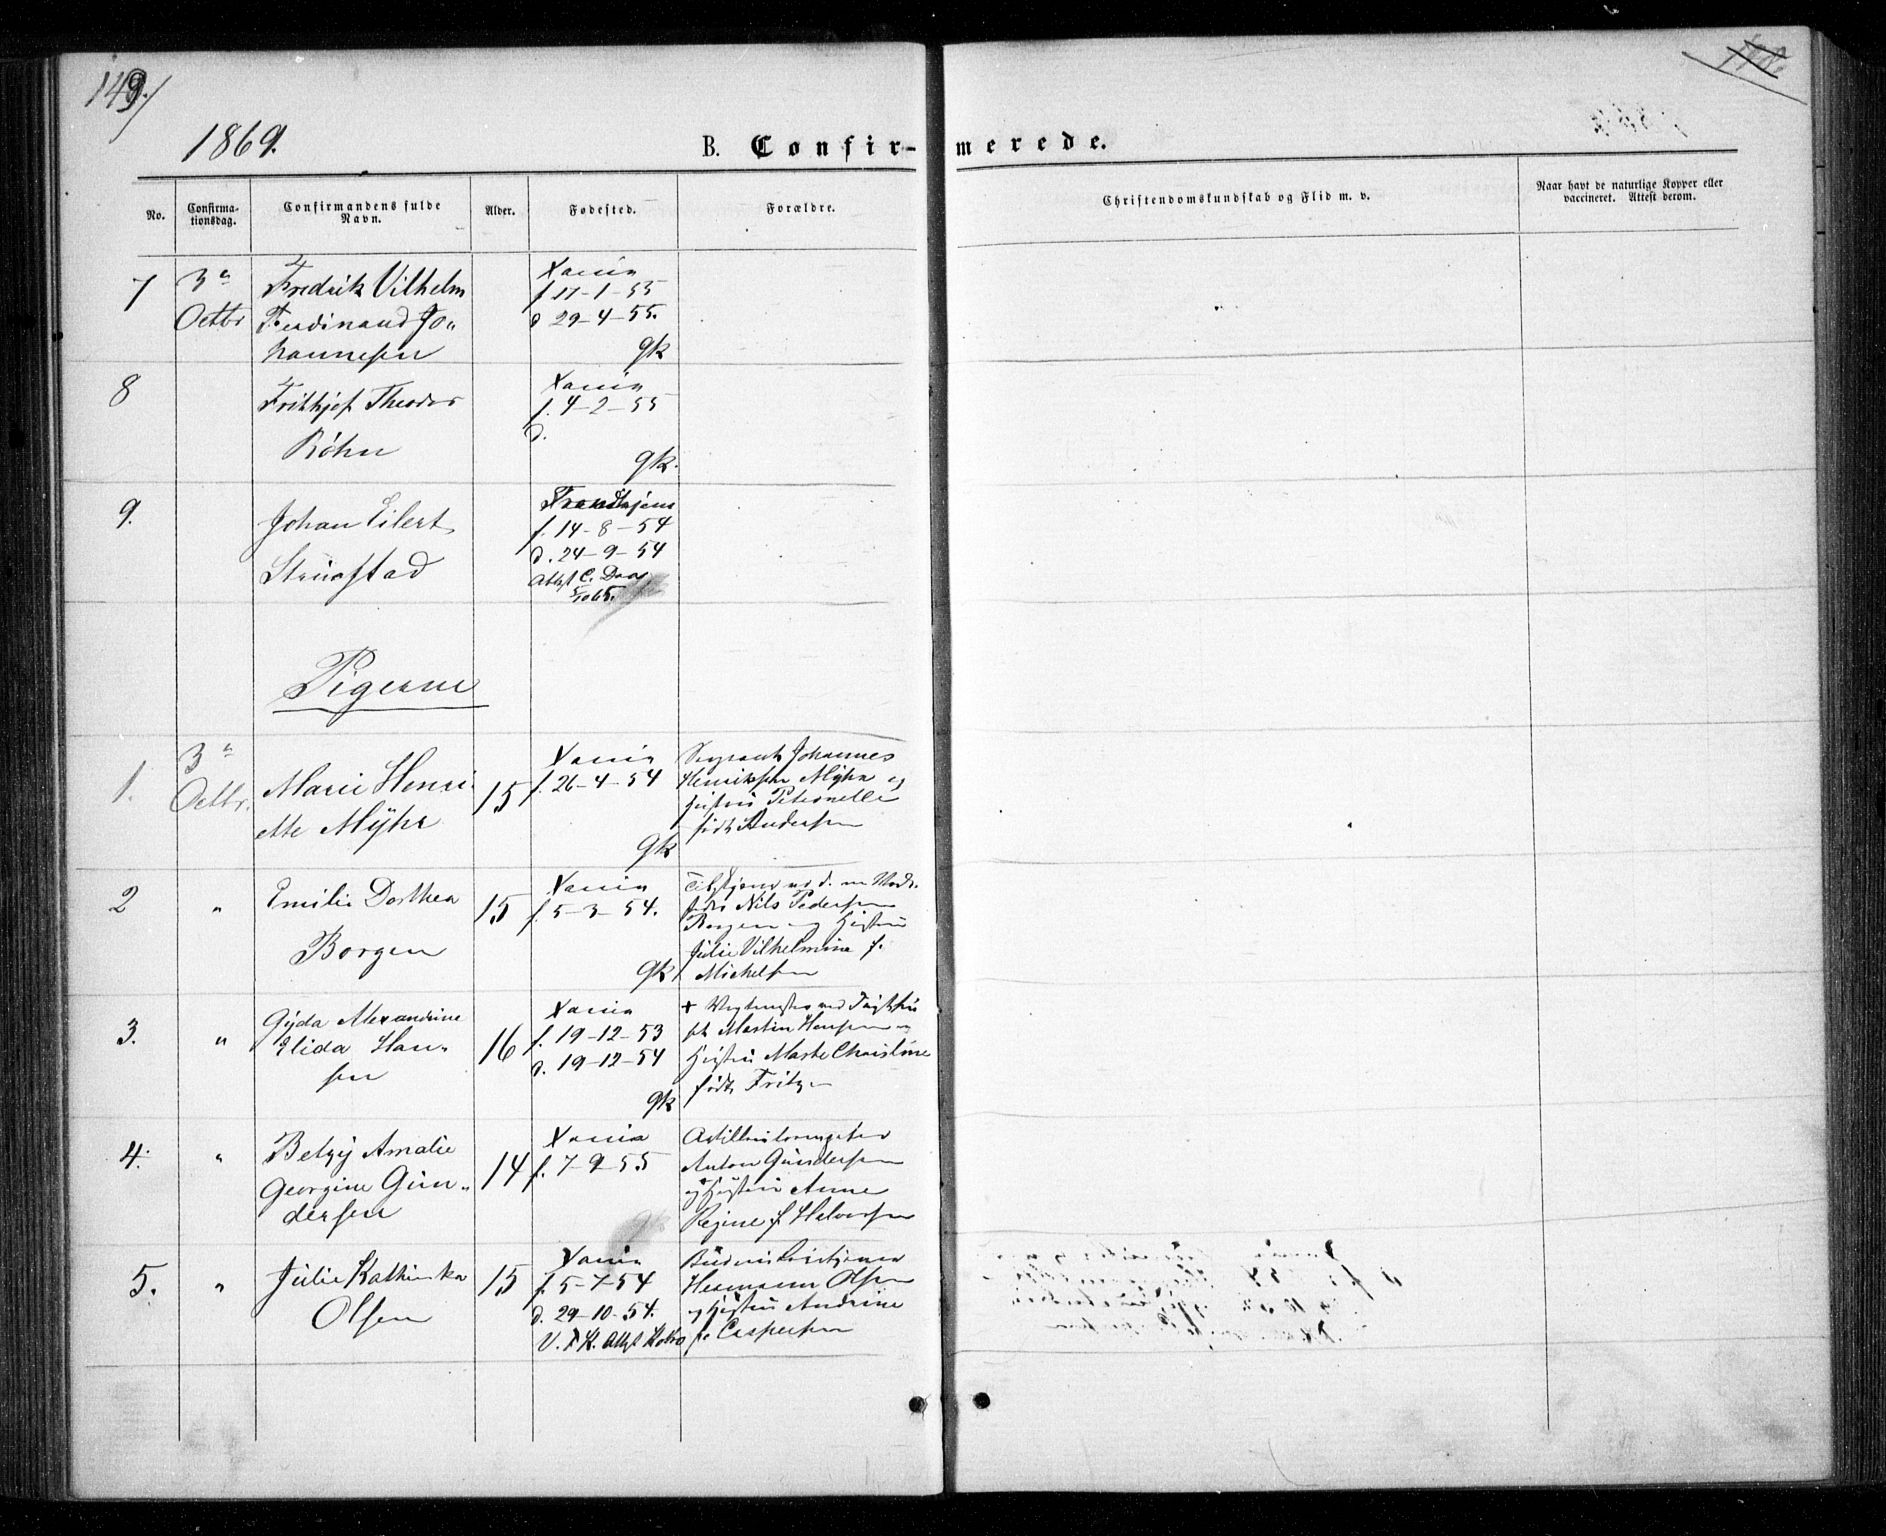 149.
1869.
B. Confir-
merede.
No.
Confirma-
tionsdag.
Confirmandens fulde
Navn.
Alder.
Fødested.
Forældre.
Christendomskundskab og Flid m. v.
Naar havt de naturlige Kopper eller
vaccineret. Attest derom.
7
3die
Octbr
Fredrik Vilhelm
Ferdinand Jo„
hannesen
Xania
f 17-1-55
d 29-4-55.
gk
8
Frithjof Theodor
Röhn
Xania
f. 4-2-55
d.
gk.
9.
Johan Eilert
f. 14-8-54
d. 24-9-54
Pigerne
1.
3
Octbr.
Marie Henri
ette Mÿhr
15
Xania
f. 26-4-54
gk
Johannes
Henriksen Mÿhr og
Hustru Peternelle
født Andersen
2
"
Emilie Dorthea
Borgen
15
Xania
f. 5-3-54.
gk
Nils Pedersen
Borgen og Hustru
Julie Vilhelmine f.
Michelsen
3.
"
Gÿda Alexandrine
Elida Han„
sen
16
Xania
f. 19-12-53
d. 19-12-54
gk
Martin Hansen og
Hustru Marte Christine
født
4.
"
Betzÿ Amalie
Georgine Gun„
dersen
14
Xania
f. 7-9-55
gk
Anton Gundersen
og Hustru Anne
Regine f Halvorsen
5.
"
Julie Kathinka
Olsen
15
Xania
f. 5-7-54
d. 29-10-54.
Hermann Olsen
og Hustru Andrine
f. Caspersen